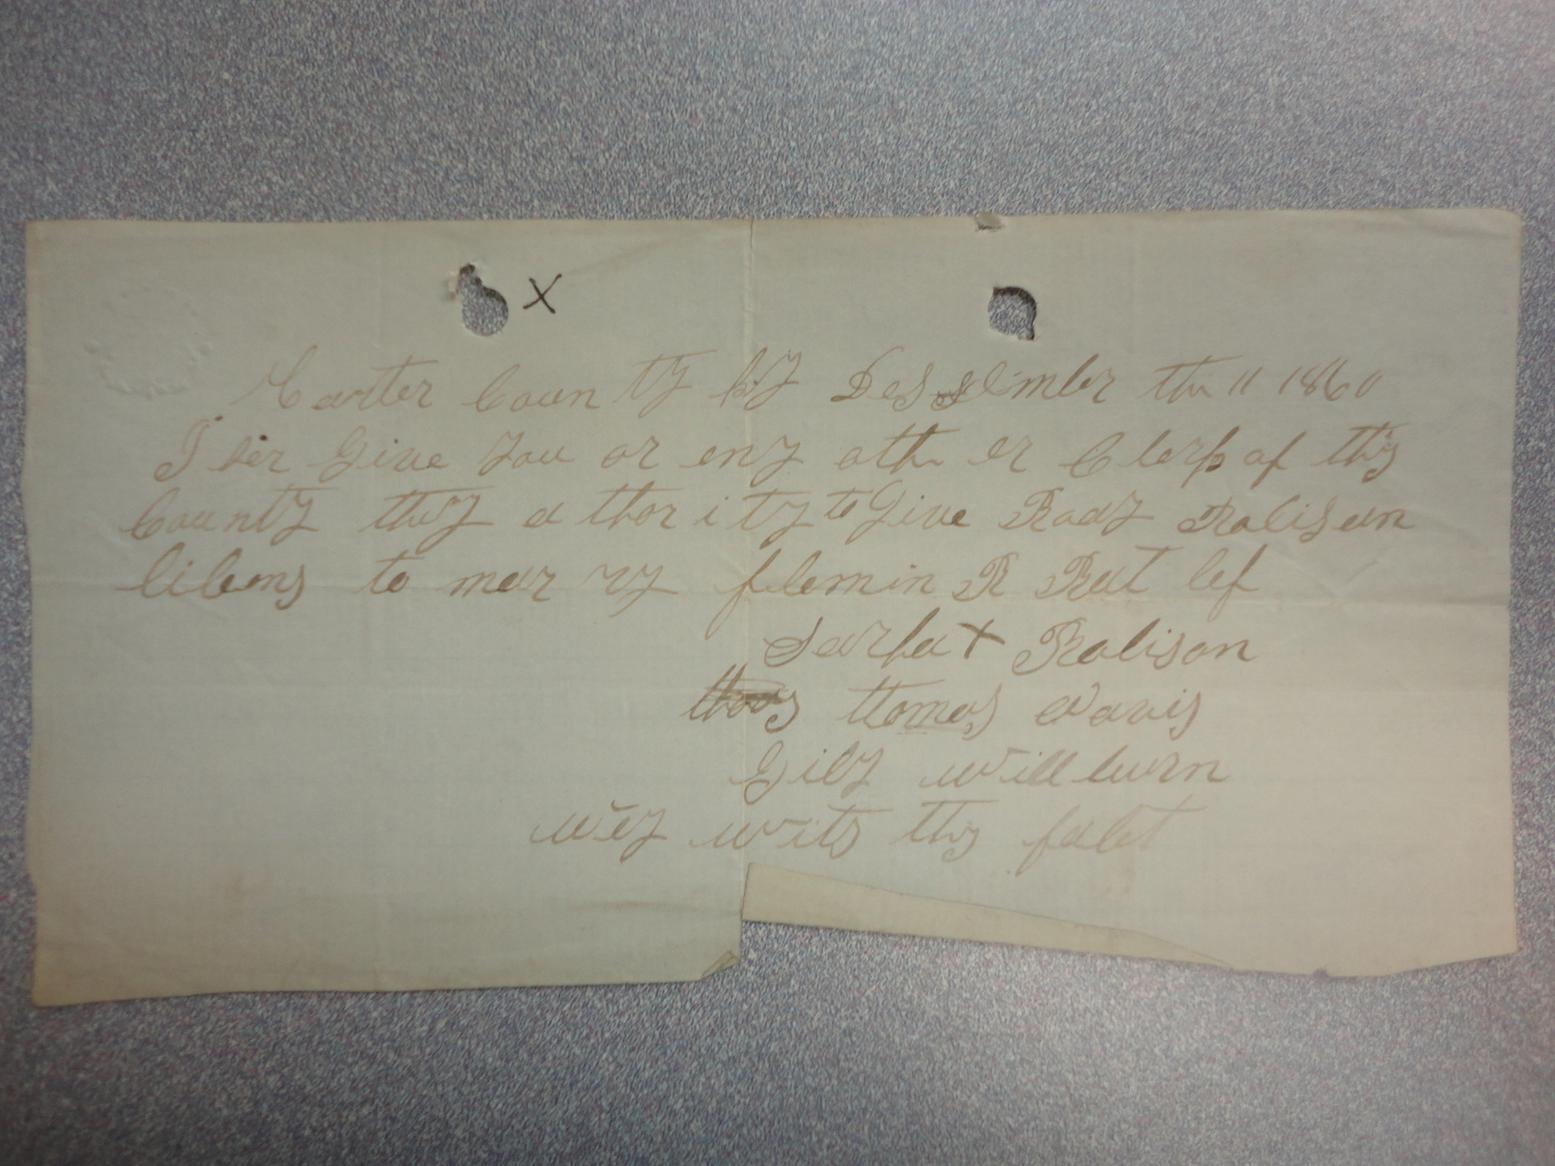 X
Carter Coun ty ky Dessember the 11 1860
I her give you or eny oth er Clerk of thy
County thy a thor i ty to give Roay Ralisun
libens to mar ry flemin R Rat lef
Sarha X Ralison
thos thomas davis
Gily will burn
wey wits thy fakt